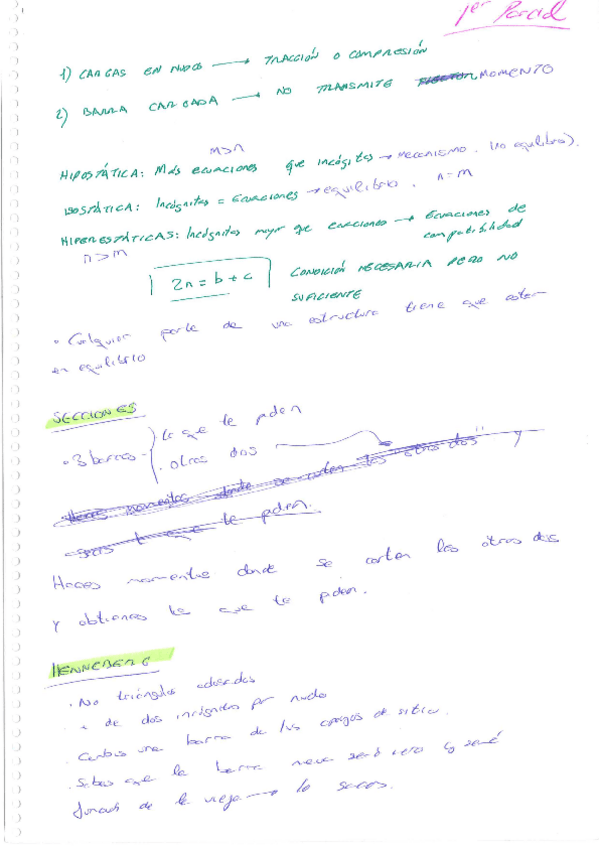 1er Parcial
1) CARGAS EN NUDOS → TRACCIÓN O COMPRESIÓN
2) BARRA CARGADA → NO TRANSMITE MOMENTO
m>n
HIPOSTÁTICA: Más ecuaciones que incógnitas → MECANISMO. (No equilibrio).
ISOSTÁTICA: Incógnitas = Ecuaciones → equilibrio. n=m
HIPERESTÁTICAS: Incógnitas mayor que ecuaciones → Ecuaciones de
compatibilidad
n>m
2n = b + c
CONDICIÓN NECESARIA PERO NO
SUFICIENTE
• Cualquier parte de una estructura tiene que estar
en equilibrio
SECCIONES
• 3 barras
lo que te piden
. otras dos
y
te piden.
Haces momentos donde se cortan las otras dos
y obtienes lo que te piden.
HENNEBERG
. No triángulos adosados
+ de dos incógnitas por nudo
. Cambio una barra de los apoyos de sitio.
. Sabes que la barra nueva será cero y será
de la vieja → lo sacas.